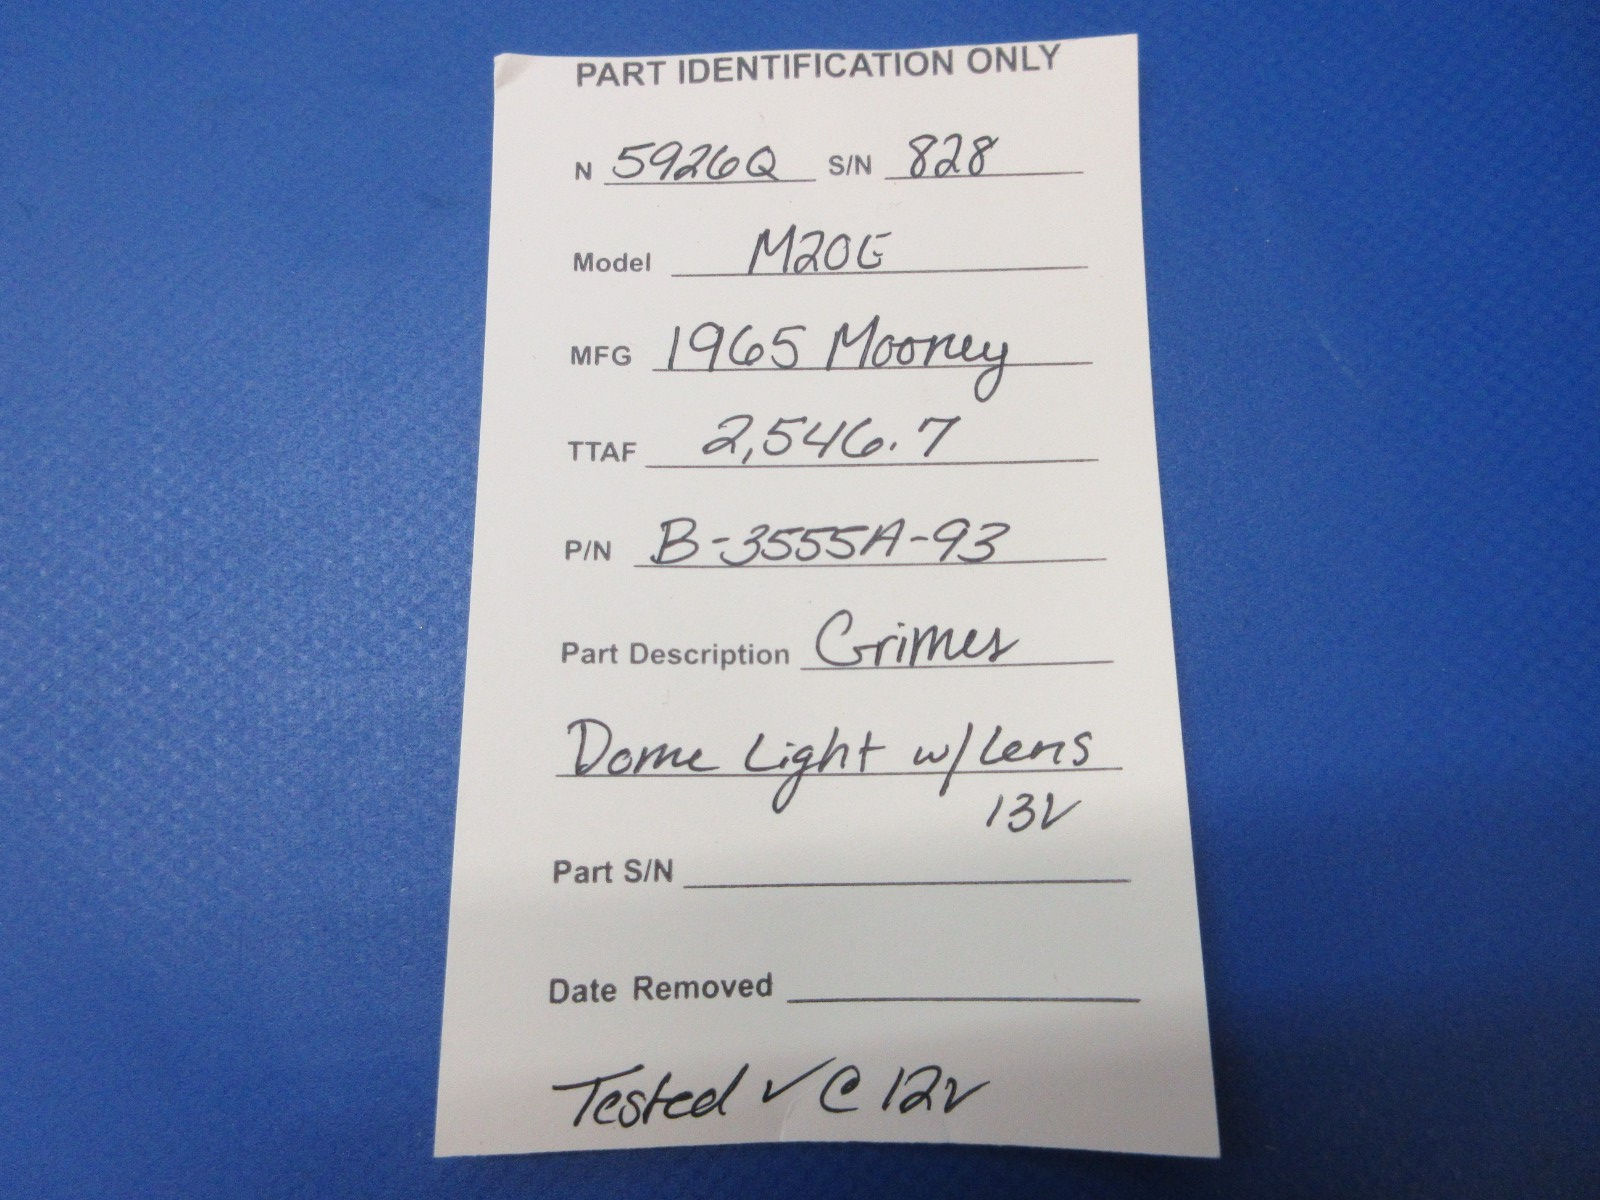 PART IDENTIFICATION ONLY
N 5926Q S/N 828
Model M20E
MFG 1965 Mooney
TTAF 2,546.7
P/N B-3555A-93
Part Description Grimes
Dome Light w/Lens
13V
Part S/N
Date Removed
Tested ✓ @ 12V